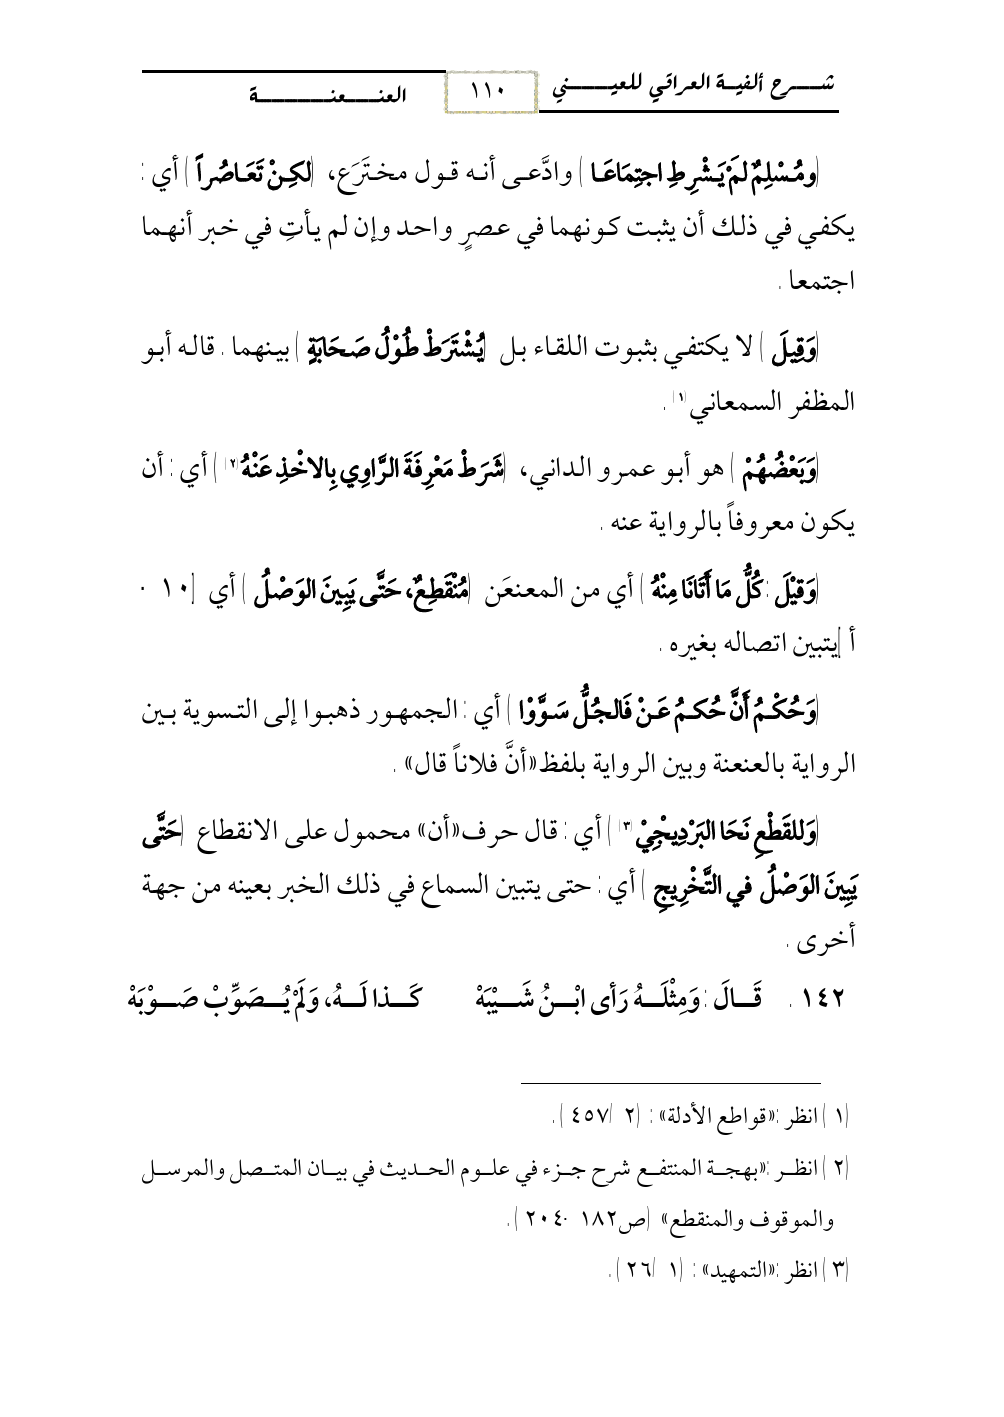 شـــرح ألفيـة العراقي للعيـــــني
١١٠
العنـــعنــــــــــة
(ومُـسْلِمٌ لمَ يَـشْرِطِ اجتِمَاعَـا) وادَّعـى أنـه قـول مخـتَرَع، (لكِـنْ تَعَـاصُراً) أي :
يكفي في ذلـك أن يثبـت كـونهما في عـصرٍ واحـد وإن لم يـأتِ في خـبر أنهـما
اجتمعا .
(وَقِيلَ) لا يكتفـي بثبـوت اللقـاء بـل (يُشْتَرَطْ طُوْلُ صَـحَابَةٍ) بيـنهما . قالـه أبـو
المظفر السمعاني(١) .
(وَبَعْضُهُمْ) هو أبـو عمـرو الـداني، (شَرَطْ مَعْرِفَةَ الرَّاوِي بِالاخْذِ عَنْهُ(٢)) أي : أن
يكون معروفاً بالرواية عنه .
(وَقيْلَ : كُلُّ مَا أَتَانَا مِنْهُ) أي من المعنعَن (مُنْقَطِعٌ، حَتَّى يَبِينَ الوَصْلُ) أي [١٠٠
أ] يتبين اتصاله بغيره .
(وَحُكْـمُ أَنَّ حُكـمُ عَـنْ فَالجُلُّ سَـوَّوْا) أي : الجمهـور ذهبـوا إلى التـسوية بـين
الرواية بالعنعنة وبين الرواية بلفظ «أنَّ فلاناً قال» .
(وَللقَطْعِ نَحَا البَرْدِيجْيْ(٣)) أي : قال حرف «أن» محمول على الانقطاع (حَتَّى
يَبِينَ الوَصْلُ في التَّخْرِيجِ) أي : حتى يتبين السماع في ذلك الخبر بعينه من جهة
أخرى .
١٤٢ . قَـــالَ : وَمِثْلَـــهُ رَأى ابْـــنُ شَـــيْبَهْ كَـــذا لَـــهُ، وَلَمْ يُـــصَوِّبْ صَـــوْبَهْ
(١) انظر : «قواطع الأدلة» : (٢/ ٤٥٧).
(٢) انظــر : «بهجــة المنتفــع شرح جــزء في علــوم الحــديث في بيــان المتــصل والمرســل
والموقوف والمنقطع» (ص١٨٢-٢٠٤).
(٣) انظر : «التمهيد» : (١/ ٢٦).